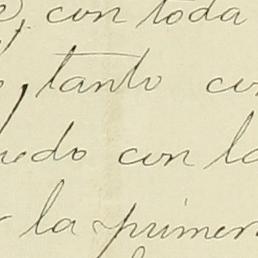 con toda
, tanto co
uedo con la
la primer